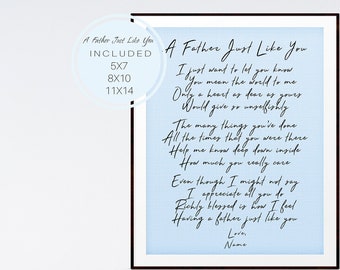 A Father Just Like You
INCLUDED
5X7
8X10
11X14
A Father Just Like You
I just want to let you know
You mean the world to me
Only a heart as dear as yours
Would give so unselfishly
The many things you've done
All the times that you were there
Help me know deep down inside
How much you really care
Even though I might not say
I appreciate all you do
Richly blessed is how I feel
Having a father just like you
Love,
Name